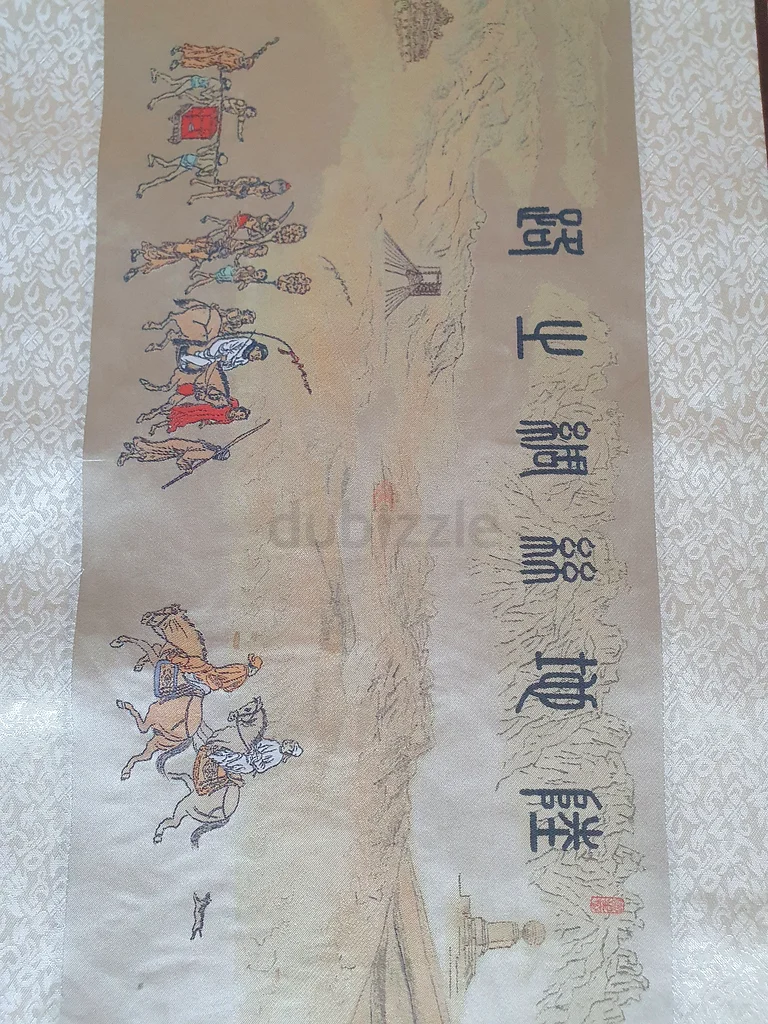 陸地絲綢之路
dubizzle